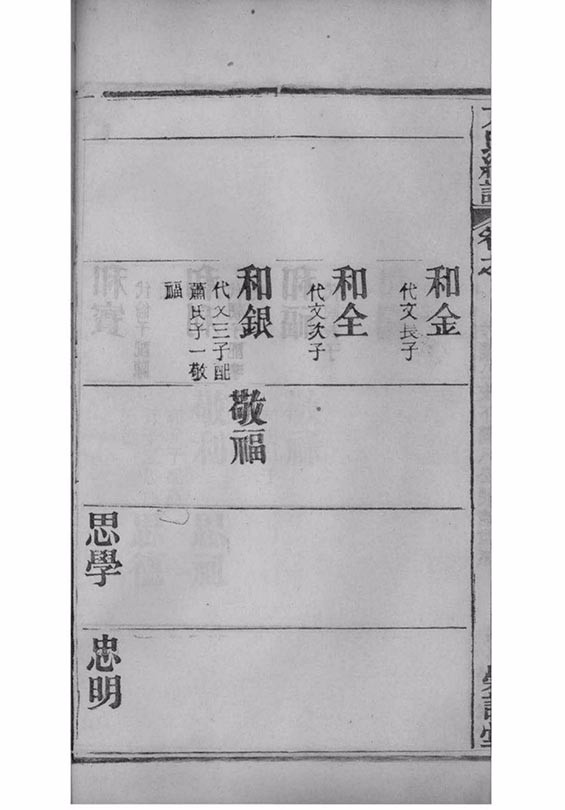 和金
代文長子
和全
代文次子
和銀
代文三子配
蕭氏子一敬
福
敬福
思學
忠明